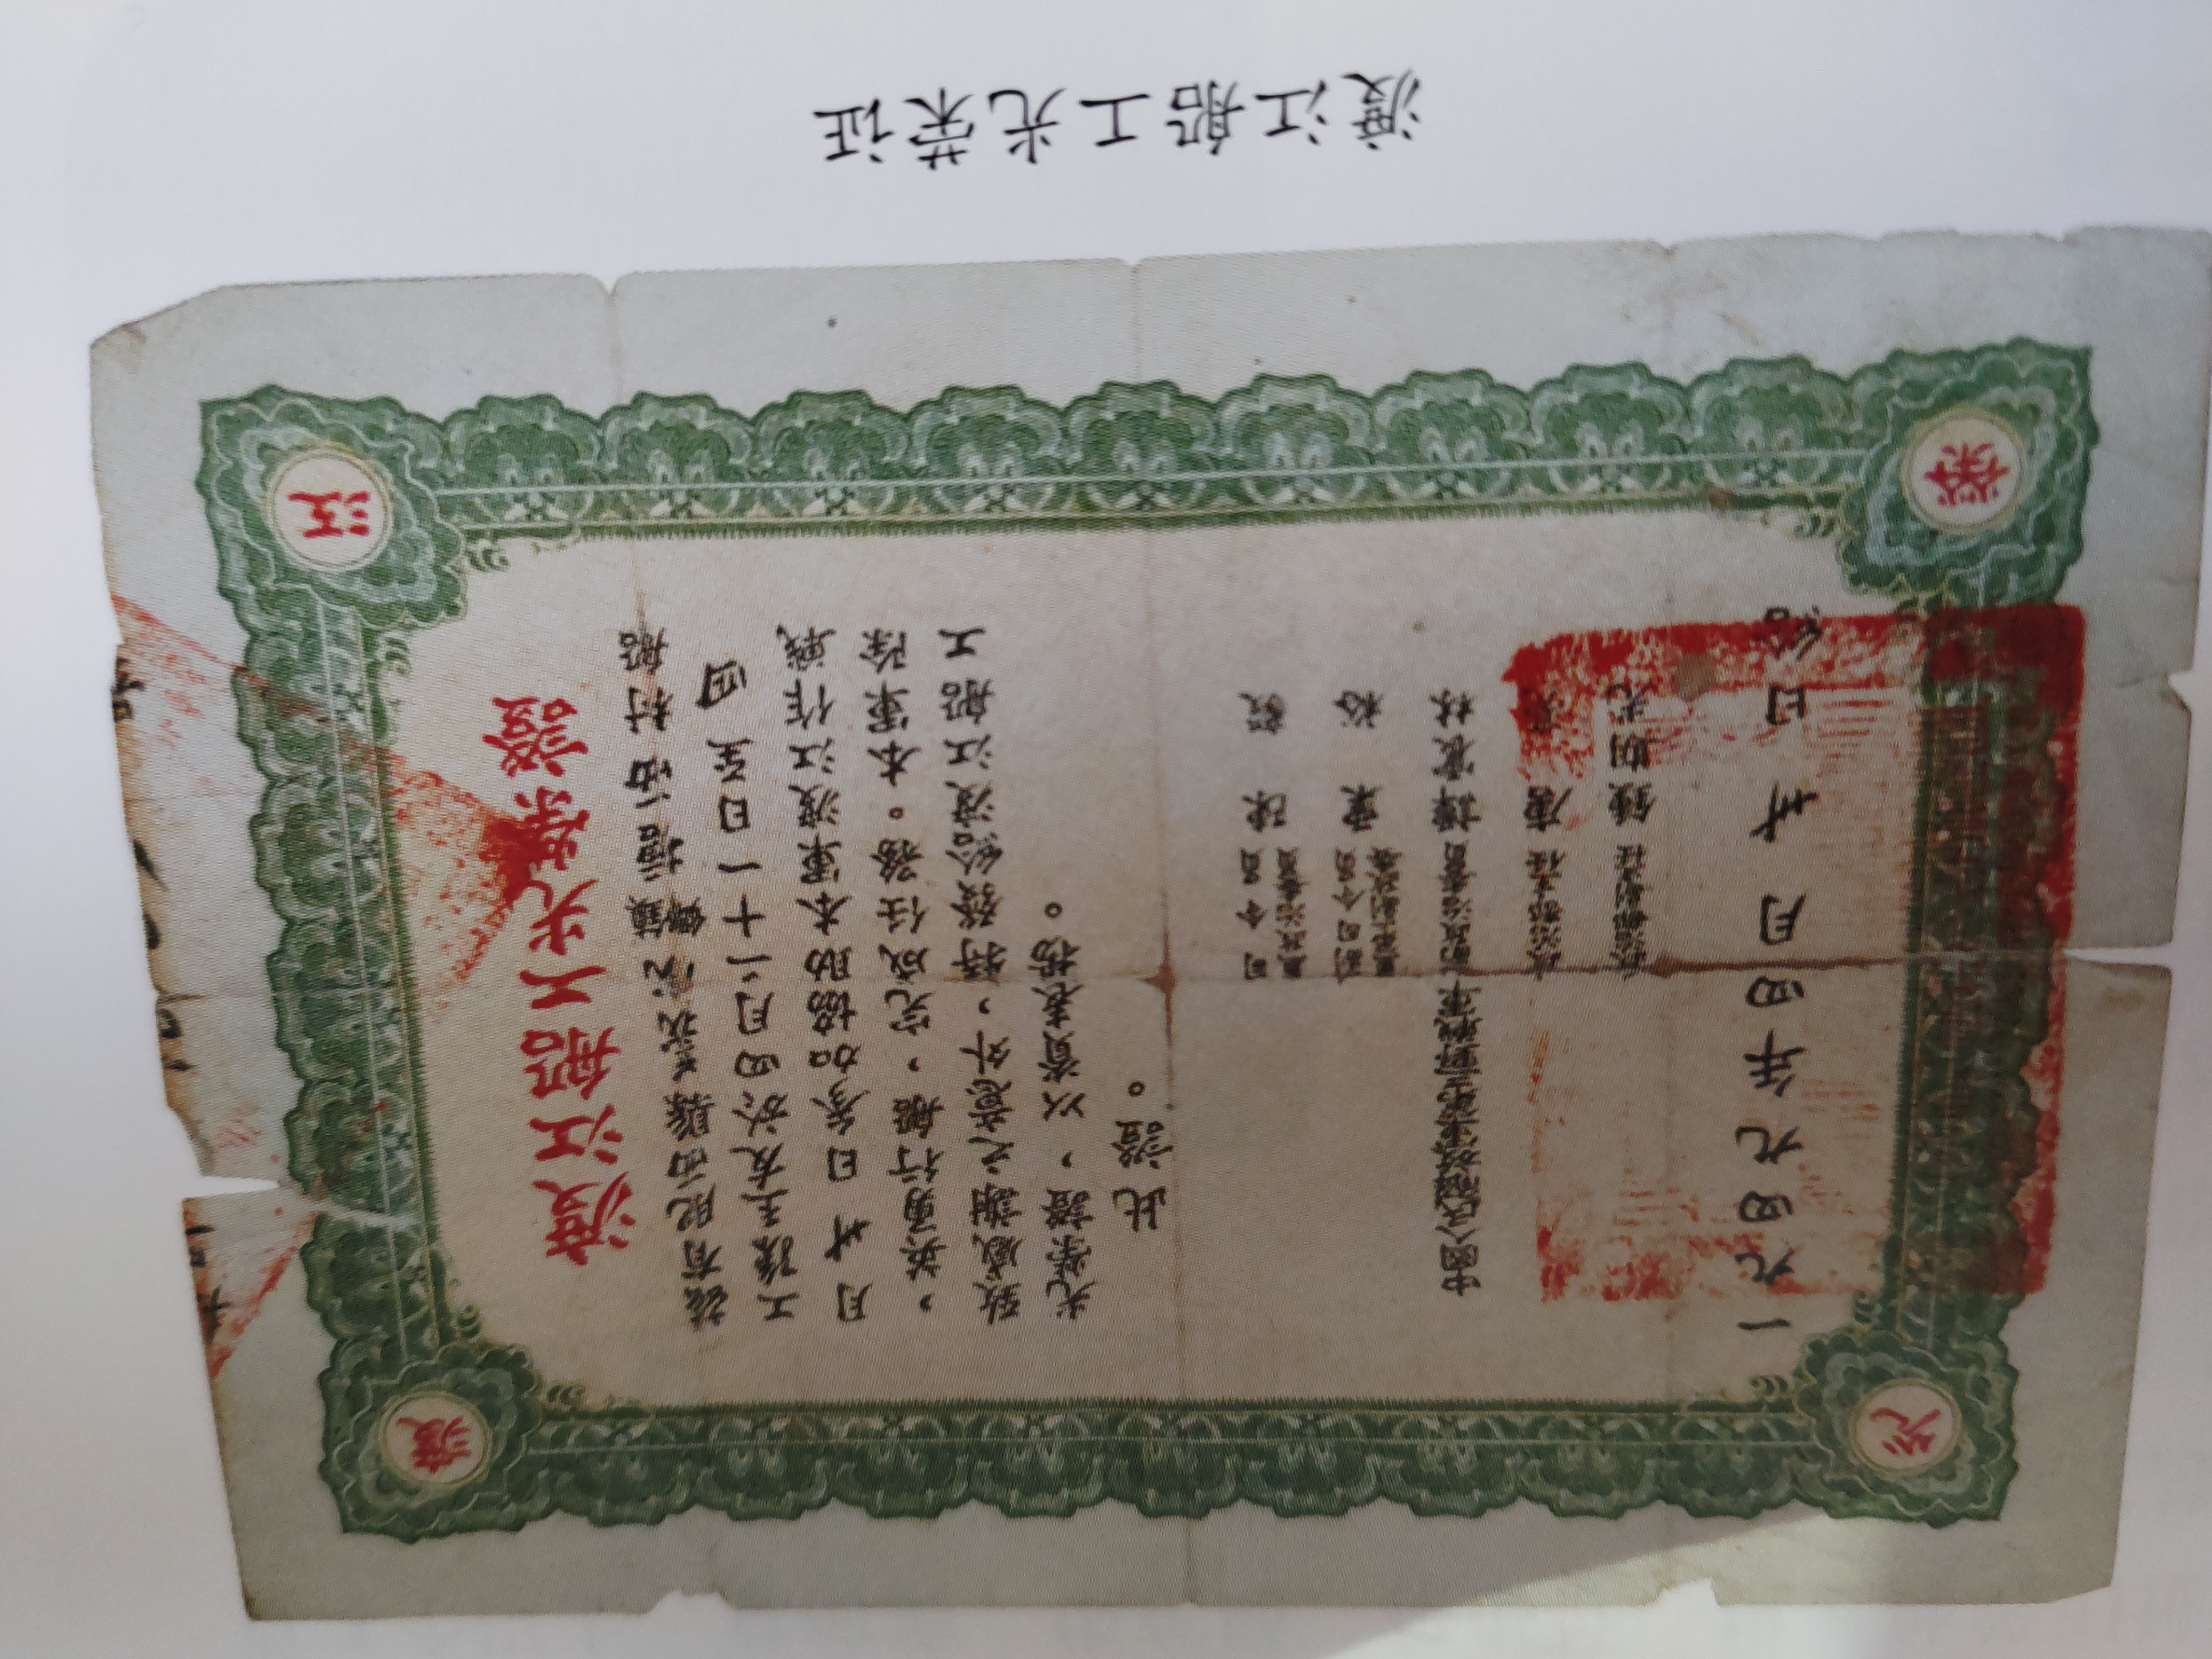 渡江船工光榮證
茲有肥西縣義城鎮鄉塘西村船
工孫玉友於四月二十一日至四
月卅日參加協助本軍渡江作戰
，英勇行船，完成任務。本軍除
致感謝之意外，特發給渡江船工
光榮證，以資表揚。
此證。
中國人民解放軍第三野戰軍
司令員
兼政治委員
陳毅
副司令員
兼第二副政委
粟裕
副政治委員 譚震林
政治部主任 唐亮
政治部副主任 鍾期光
一九四九年四月卅日給
渡
江
光
榮
渡江船工光荣证